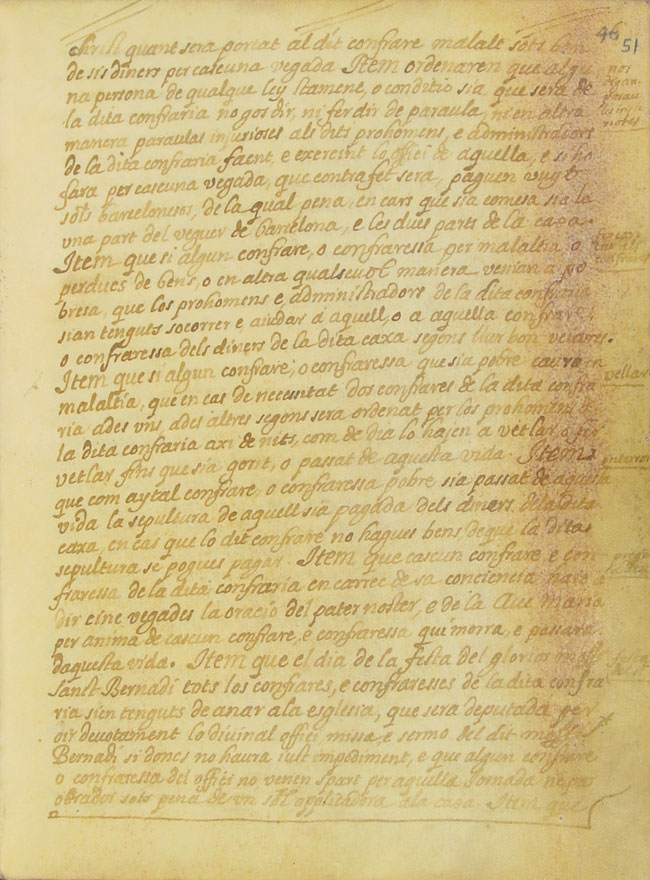 46
51
Christi quant sera portat al dit confrare malalt sots ban
de sis diners per cascuna vegada Item ordenaren que algu
na persona de qualque ley stament, o conditio sia que sera de
la dita confraria no gos dir, ni fer dir de paraula, ni en altra
manera paraulas injurioses als dits prohomens, e administradors
de la dita confraria faent, e exercint lo offici de aquella, e si ho
fara per cascuna vegada, que contrafet sera, paguen vuyt
sols barcelonesos, de la qual pena, en cars que sia comesa sia la
vna part del veguer de barcelona, e les dues parts de la caxa.
Item que si algun confrare, o confraressa per malaltia, o
perdues de bens, o en altra qualsevol manera venian a po
bresa, que los prohomens e administradors de la dita confraria
sian tenguts socorrer e aiudar a aquell, o a aquella confrare
o confraressa dels diners de la dita caxa segons llur bon veiares.
Item que si algun confrare, o confraressa que sia pobre caura en
malaltia, que en cas de necessitat dos confrares de la dita confra
ria ades vns, ades altres segons sera ordenat per los prohomens de
la dita confraria axi de nits, com de dia lo hajen a vetlar, o fer
vetlar fins que sia gorit, o passat de aquesta vida. Item
que com aytal confrare, o confraressa pobre sia passat de aquesta
vida la sepultura de aquell sia pagada dels diners de la dita
caxa, en cas que lo dit confrare no hagues bens de que la dita
sepultura se pogues pagar. Item que cascun confrare e con
fraressa de la dita confraria en carrec de sa conciencia haie a
dir cinc vegades la oracio del pater noster, e de la Ave Maria
per anima de cascun confrare, e confraressa qui morra, e passara
daquesta vida. Item que el dia de la festa del glorios
sanct Bernadi tots los confrares, e confraresses de la dita confra
ria sien tenguts de anar a la esglesia, que sera deputada per
oir devotament lo divinal offici missa, e sermo del dit
Bernadi si doncs no haura iust impediment, e que algun confrare
o confraressa del offici no venen part per aquella Jornada ne par
obrador sots pena de vn sol applicadora a la caxa. Item que